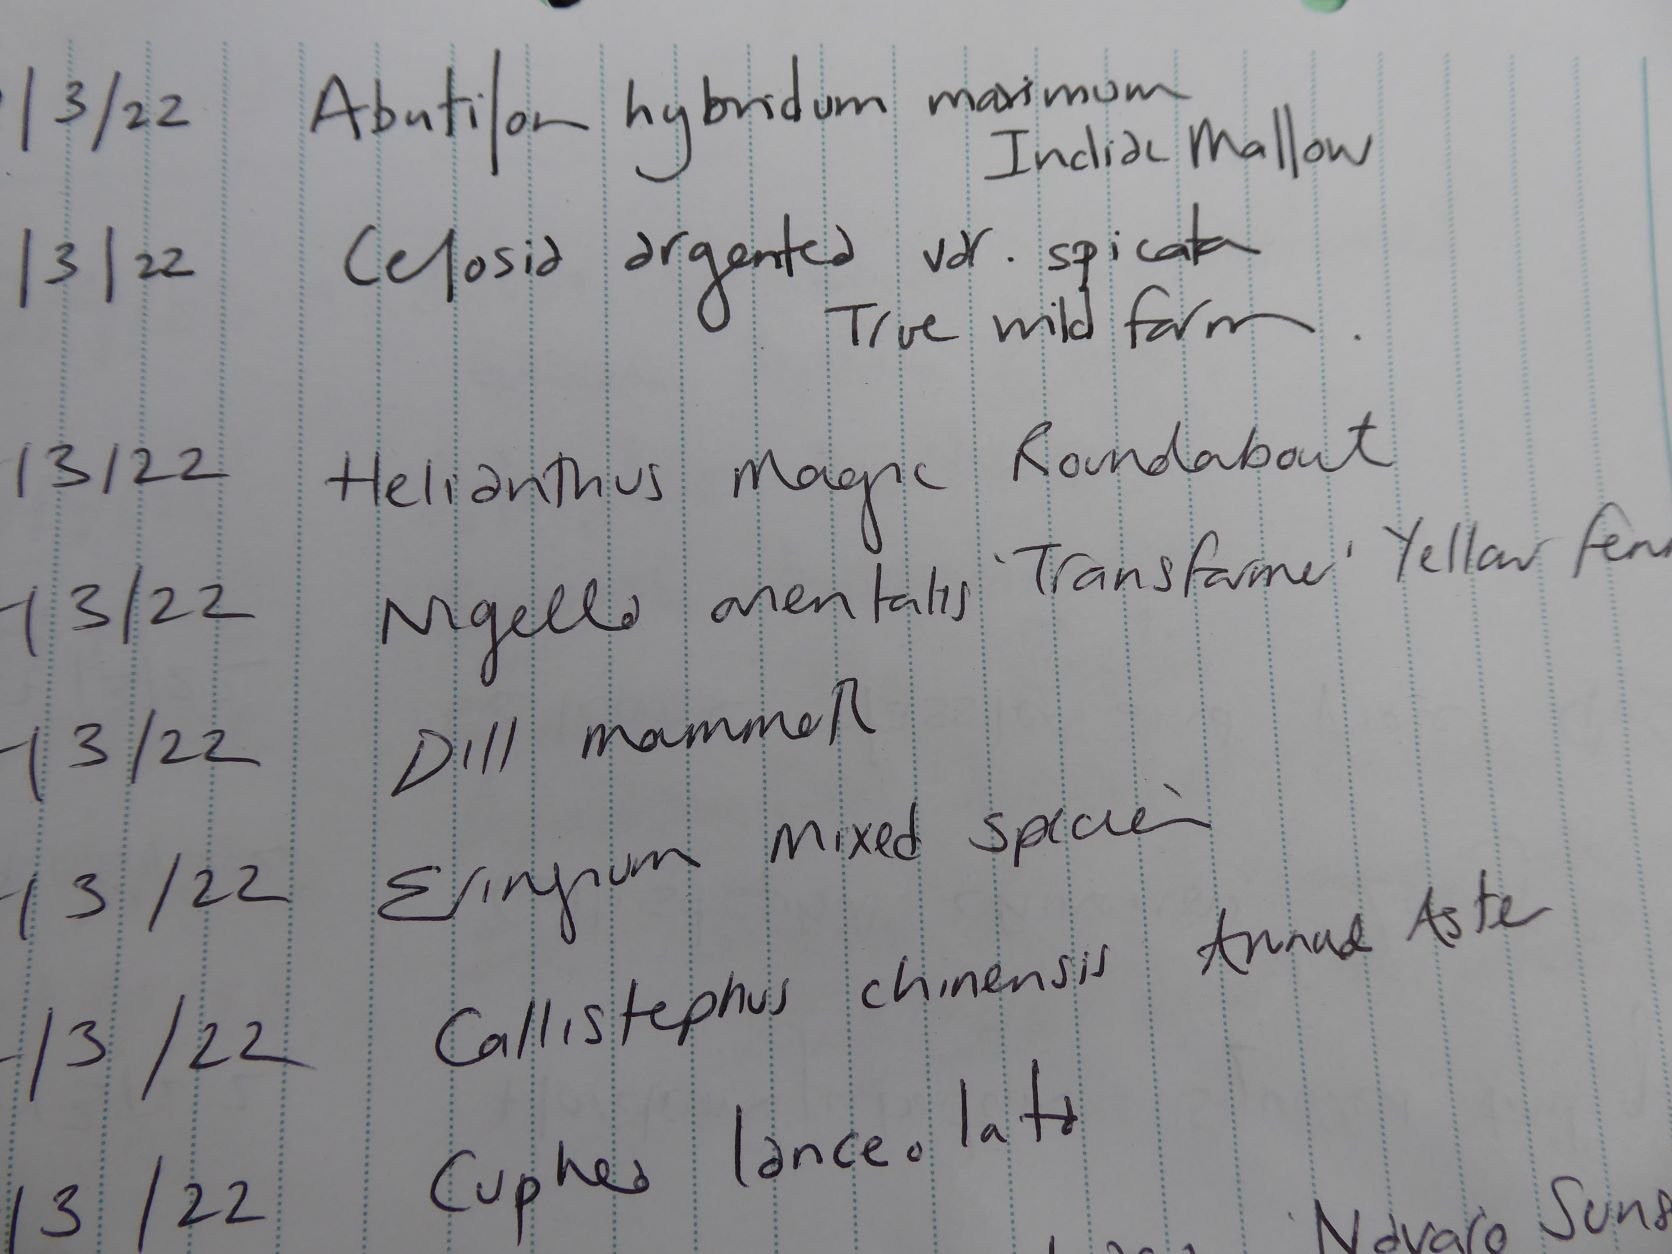 /3/22 Abutilon hybridum maximum
Indian Mallow
/3/22 Celosia argentea var. spicata
True wild form.
/3/22 Helianthus Magic Roundabout
/3/22 Nigella orientalis 'Transformer' Yellow fenn
/3/22 Dill mammoth
/3/22 Eringium mixed species
/3/22 Callistephus chinensis Annual Aster
/3/22 Cuphea lanceolata
'Navaro Suns